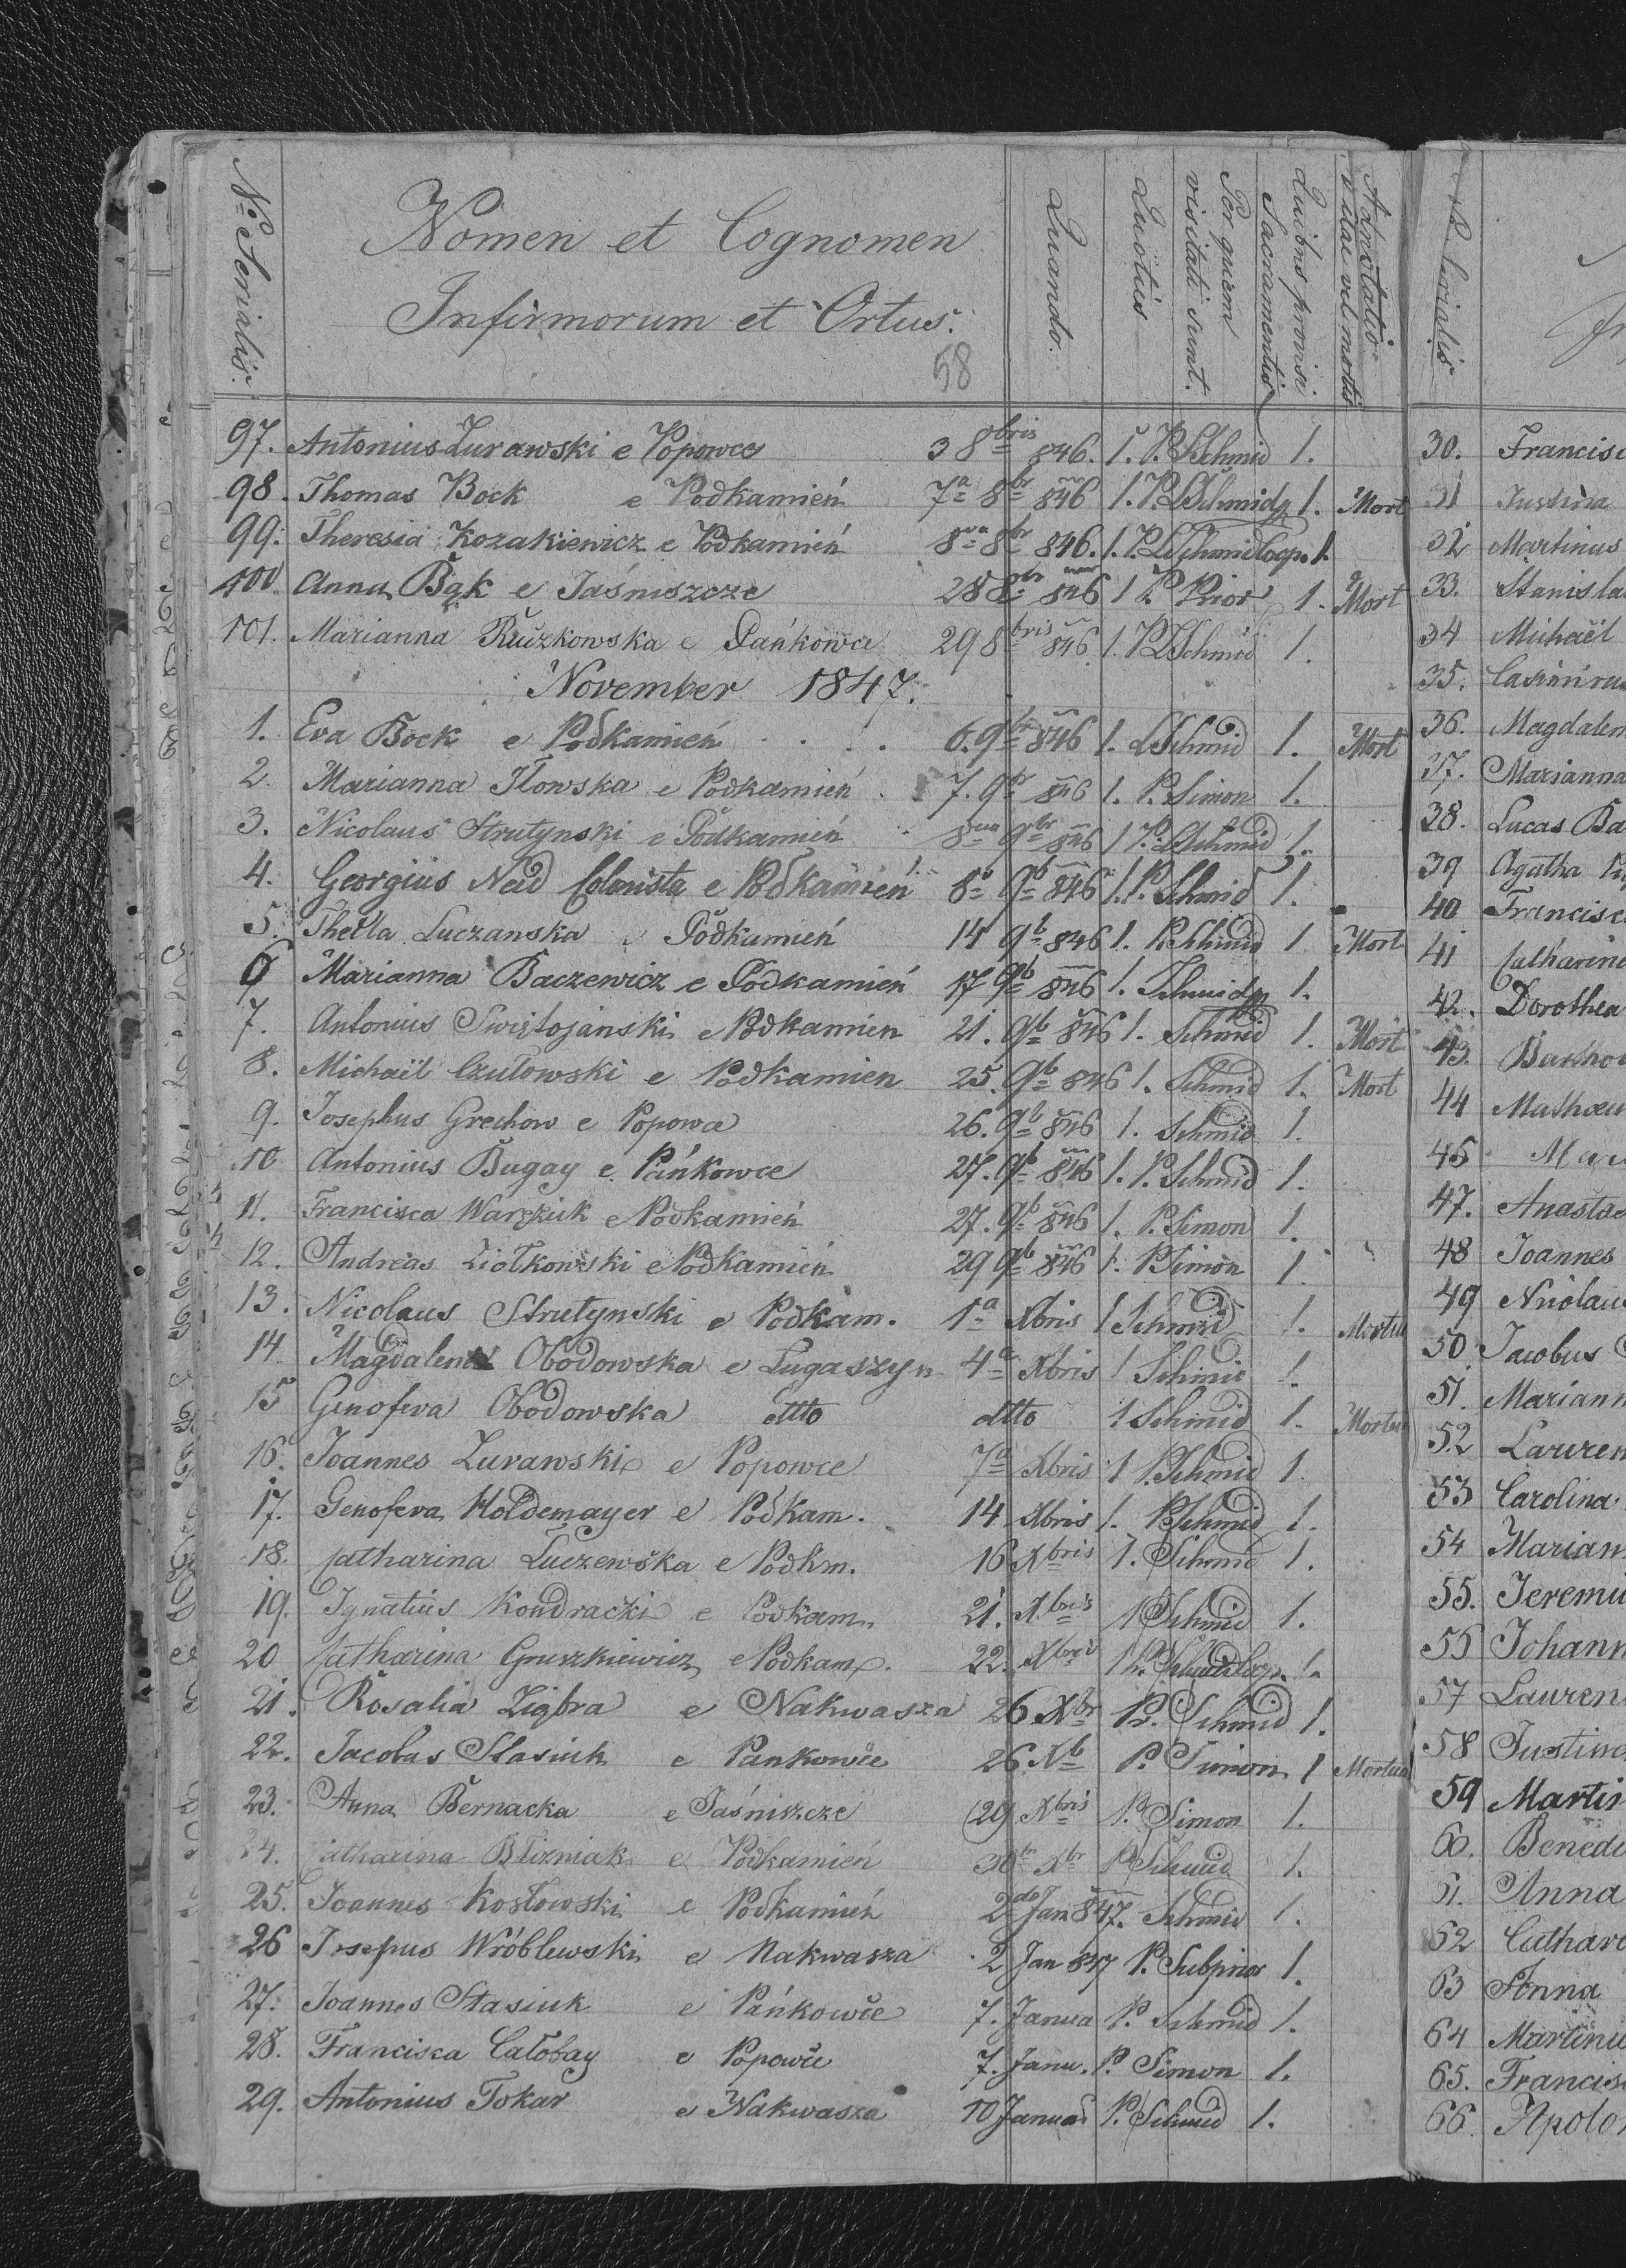 Nrus Serialis.
Nomen et Cognomen
Infirmorum et Ortus.
58
Quando.
Quoties
Per quem
visitati sunt.
Quibus provisi
Sacramentis
Adnotatio
vitae vel mortis
97. Antonius Żurawski e Popowce 3 8bris 846. 1. P. L Schmid 1.
98. Thomas Bock e Podkamień 7a 8br 846 1. P. L Schmid 1. Mort
99. Theresia Kozakiewicz e Podkamień 8va 8br 846. 1. P. L Schmid Coop. 1.
100. Anna Bąk e Jaśniszcze 28 8br 846 1 P. Prior 1. Mort
101. Marianna Ruczkowska e Pańkowce 29 8bris 846. 1. P L Schmid 1.
November 1847.
1. Eva Bock e Podkamień 6. 9br 846 1. L Schmid 1. Mort
2. Marianna Iłowska e Podkamień 7. 9br 846 1. P. Simon 1.
3. Nicolaus Strutynski e Podkamień 8va 9br 846 1 P. L Schmid 1.
4. Georgius Neid Colonista e Podkamień 8b 9b 846 1. P. Schmid 1.
5. Thecla Luczanska e Podkamień 14 9b 846 1. P. Schmid 1 Mort
6 Marianna Baczewicz e Podkamień 17 9b 846 1. Schmid 1.
7. Antonius Swiętojanski e Podkamien 21. 9b 846 1. Schmid 1. Mort
8. Michaël Czułowski e Podkamien 25. 9b 846 1. Schmid 1. Mort
9. Josephus Grechow e Popowce 26. 9b 846 1. Schmid 1.
10 Antonius Bugay e Pańkowce 27. 9b 846 1. P. Schmid 1.
11. Francisca Warzuk e Podkamień 27. 9b 846 1. P. Simon 1.
12. Andreas Ziołkowski e Podkamień 29 9b 846 1. P Simon 1.
13. Nicolaus Strutynski e Podkam. 1a Xbris 1 Schmid 1. Mortu
14. Magdalena Obodowska e Lugaszyn 4a Xbris 1 Schmid 1.
15 Genofeva Obodowska dtto dtto 1 Schmid 1. Mortu
16. Joannes Zurawski e Popowce 7a Xbris 1 P. Schmid 1.
17. Genofeva Holdemayer e Podkam. 14 Xbris 1. P Schmid 1.
18. Catharina Luczewska e Podkm. 16 Xbris 1. Schmid 1.
19. Ignatius Kondracki e Podkam. 21. Xbris 1 Schmid 1.
20 Catharina Gruszkiewicz e Podkam. 22. Xbris 1 P. Schmid Coop. 1.
21. Rosalia Ziębra e Nakwasza 26 Xbr Pr. Schmid 1.
22. Jacobus Stasiuk e Pankowce 26. Xb P. Simon 1 Mortuu
23. Anna Bernacka e Jaśniszcze 29 Xbris P. Simon 1.
24. Catharina Blizniak e Podkamień 30 Xbr P Schmid 1.
25. Joannes Kosłowski e Podkamień 2do Jan 847. Schmid 1.
26 Josepus Wróblewski e Nakwasza 2 Jan 847 P. Subprior 1.
27. Joannes Stasiuk e Pańkowce 7. Janua P. Schmid 1.
28. Francisca Całobay e Popowce 7. Janu. P. Simon 1.
29. Antonius Tokar e Nakwasza 10 Januar P. Schmid 1.
Serialis
30. Francisc
31 Justina
32 Martinus
33. Stanisla
34 Michaël
35. Casimirus
36. Magdalen
37. Marianna
38. Lucas Ba
39 Agatha
40 Francisc
41 Catharina
42. Dorothea
43. Barthol
44 Mathaeu
45
47. Anastas
48 Joannes
49 Nicolaus
50 Jacobus
51. Mariann
52 Lauren
53 Carolina
54 Mariann
55. Jeremi
56 Johann
57 Lauren
58 Justine
59 Martin
60. Benedi
61. Anna
62 Cathar
63 Anna
64 Martinu
65. Francisc
66. Apolon